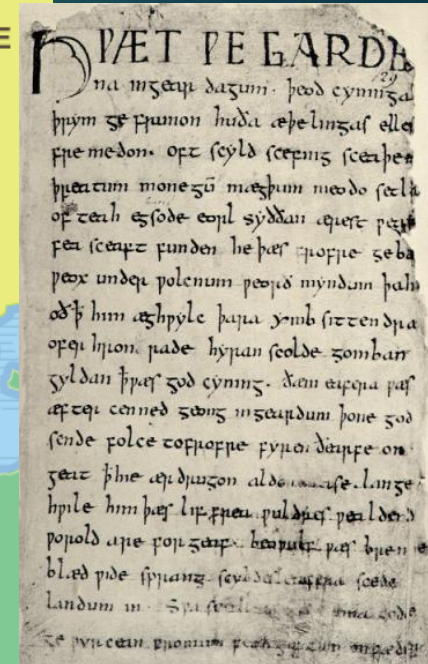 E
HǷÆT ǷE GARDE
na ingear dagum. þeod cyninga
þrym ge frunon huða æþelingas elle
fre medon. oft scyld scefing sceaþen
þreatum monegū mægþum meodo setla
of teah egsode eorl syððan ærest
fea sceaft funden he þæs frofre geba
ƿeox under ƿolcnum ƿeorð myndum þah
oð ꝥ him æghƿylc þara ymb sittendra
ofer hron rade hyran scolde gomban
gyldan ꝥ ƿæs god cyning. ðæm eafera ƿæs
æfter cenned geong ingeardum þone god
sende folce tofrofre fyren ðearfe on
geat ꝥ hie ær drugon aldor ase. lange
hƿile him þæs lif frea ƿuldres ƿealdend
ƿorold are for geaf. beoƿulf ƿæs breme
blæd ƿide sprang scyldes eafera scede
landum in. gode
ge ƿyrcean fromum